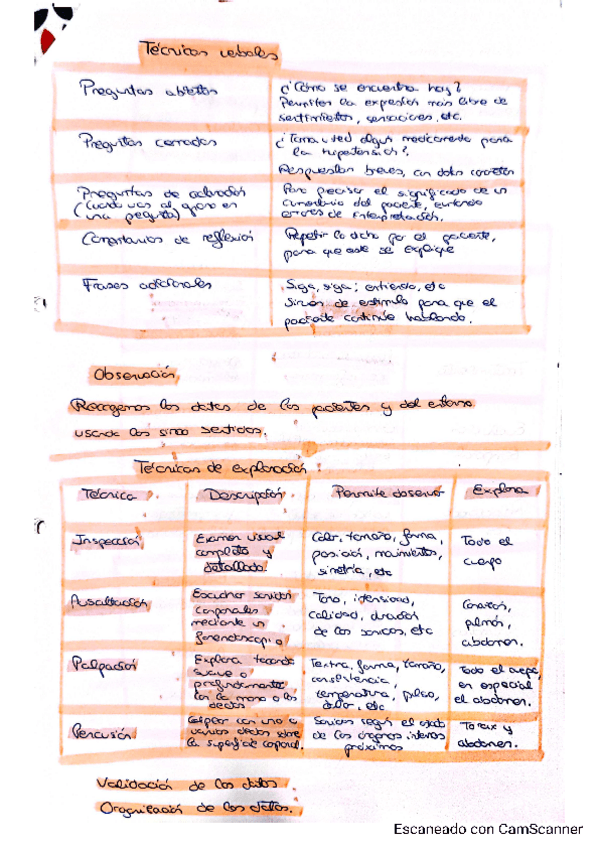 Técnicas verbales
Preguntas abiertas
¿Cómo se encuentra hoy?
Permiten la expresión más libre de
sentimientos, sensaciones, etc.
Preguntas cerradas
¿Toma usted algún medicamento para
la hipertensión?
Respuestas breves, con datos concretos
Preguntas de aclaración
(cuando vas al grano en
una pregunta)
Para precisar el significado de un
comentario del paciente, evitando
errores de interpretación.
Comentarios de reflexión
Repetir lo dicho por el paciente,
para que este se explique
Frases adicionales
Siga, siga; entiendo, etc
Sirven de estímulo para que el
paciente continúe hablando.
Observación
Recogemos los datos de los pacientes y del entorno
usando los cinco sentidos.
Técnicas de exploración:
Técnica
Descripción
Permite observar
Explora
Inspección
Examen visual
completo y
detallado
Color, tamaño, forma,
posición, movimientos,
simetría, etc
Todo el
cuerpo
Auscultación
Escuchar sonidos
corporales
mediante un
fonendoscopio
Tono, intensidad,
calidad, duración
de los sonidos, etc
Corazón,
pulmón,
abdomen.
Palpación
Explora tocando
suave o
profundamente
con la mano o los
dedos
Textura, forma, tamaño,
consistencia,
temperatura, pulso,
dolor, etc
Todo el cuerpo,
en especial
el abdomen.
Percusión
Golpear con uno o
varios dedos sobre
la superficie corporal.
Sonidos según el estado
de los órganos internos
próximos
Tórax y
abdomen.
Validación de los datos
Organización de los datos.
Escaneado con CamScanner